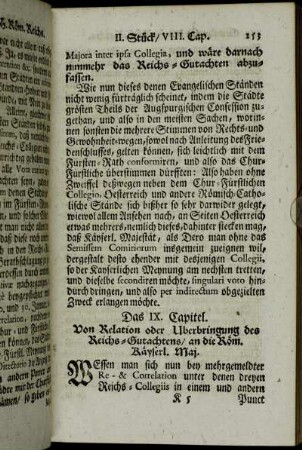 II. Stück / VIII. Cap. 153
Majora inter ipsa Collegia, und wäre darnach
nunmehr das Reichs-Gutachten abzu-
fassen.
Wie nun dieses denen Evangelischen Ständen
nicht wenig fürträglich scheinet, indem die Städte
größten Theils der Augspurgischen Confession zu-
gethan, und also in den meisten Sachen, worin-
nen sonsten die mehrere Stimmen von Rechts-und
Gewohnheit-wegen, sowol nach Anleitung des Frie-
denschlusses, gelten können, sich leichtlich mit dem
Fürsten-Rath conformiren, und also das Chur-
Fürstliche überstimmen dürfften: Also haben ohne
Zweiffel deßwegen neben dem Chur-Fürstlichen
Collegio, Oesterreich und andere Römisch-Catho-
lische Stände sich bißher so sehr darwider gelegt,
wiewol allem Ansehen nach, an Seiten Oesterreich
etwas mehrers, nemlich dieses, dahinter stecken mag,
daß Käyserl. Majestät, als Dero man ohne das
Semissem Comitiorum insgemein zueignen wil,
dergestalt desto ehender mit desjenigen Collegii,
so der Kayserlichen Meynung am nechsten tretten,
und dieselbe secondiren möchte, singulari voto hin-
durch dringen, und also per indirectum obgezielten
Zweck erlangen möchte.
Das IX. Capitel.
Von Relation oder Uberbringung des
Reichs-Gutachtens / an die Röm.
Käyserl. Maj.
WEssen man sich nun bey mehrgemeldter
Re- & Correlation unter denen dreyen
Reichs-Collegiis in einem und andern
K 5 Punct